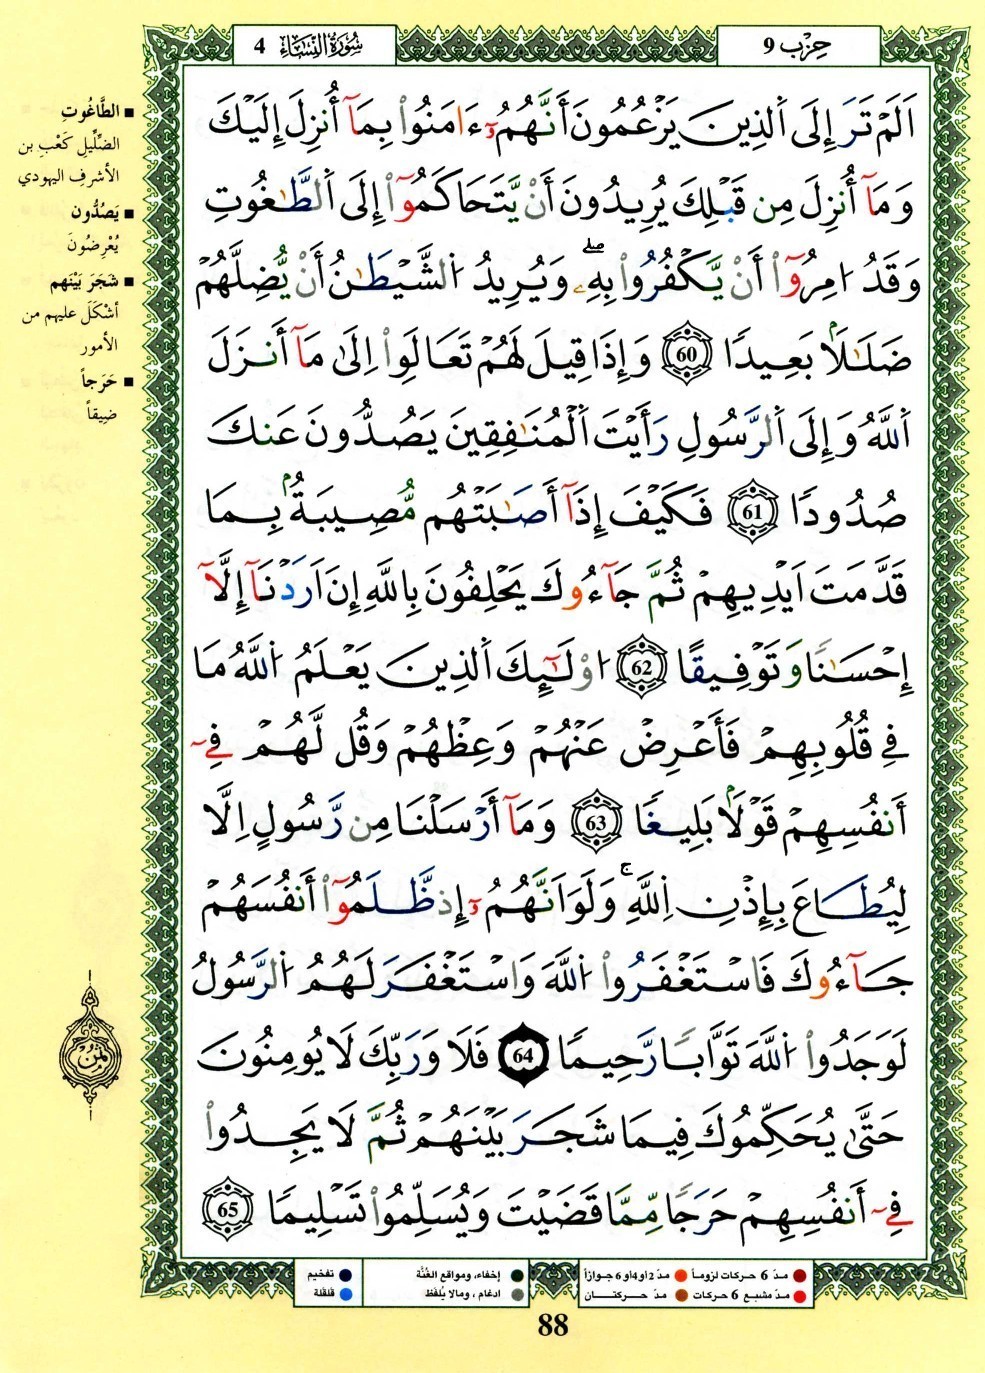 سُورَةُ النِّسَاءِ 4
حِزْب 9
اَلَمْ تَرَ إِلَى اَلذِينَ يَزْعُمُونَ أَنَّهُمُۥٓ ءَامَنُواْ بِمَآ أُنزِلَ إِلَيْكَ
وَمَآ أُنزِلَ مِن قَبْلِكَ يُرِيدُونَ أَنْ يَّتَحَاكَمُوٓاْ إِلَى اَلطَّٰغُوتِ
وَقَدُ ا۟مِرُوٓاْ أَنْ يَّكْفُرُواْ بِهِۦۖ وَيُرِيدُ اُلشَّيْطَٰنُ أَنْ يُّضِلَّهُمْ
ضَلَٰلَاۢ بَعِيدًا 60 وَإِذَا قِيلَ لَهُمْ تَعَالَوِاْ اِلَىٰ مَآ أَنزَلَ
اَللَّهُ وَإِلَى اَلرَّسُولِ رَأَيْتَ اَلْمُنَٰفِقِينَ يَصُدُّونَ عَنكَ
صُدُودًا 61 فَكَيْفَ إِذَآ أَصَٰبَتْهُم مُّصِيبَةُۢ بِمَا
قَدَّمَتَ اَيْدِيهِمْ ثُمَّ جَآءُوكَ يَحْلِفُونَ بِاللَّهِ إِنَ اَرَدْنَآ إِلَّآ
إِحْسَٰنًا وَتَوْفِيقًا 62 ا۟وْلَٰٓئِكَ اَلذِينَ يَعْلَمُ اُللَّهُ مَا
فِي قُلُوبِهِمْ فَأَعْرِضْ عَنْهُمْ وَعِظْهُمْ وَقُل لَّهُمْ فِيٓ
أَنفُسِهِمْ قَوْلَاۢ بَلِيغًا 63 وَمَآ أَرْسَلْنَا مِن رَّسُولٍ اِلَّا
لِيُطَاعَ بِإِذْنِ اِللَّهِۚ وَلَوَ اَنَّهُمُۥٓ إِذ ظَّلَمُوٓاْ أَنفُسَهُمْ
جَآءُوكَ فَاسْتَغْفَرُواْ اُللَّهَ وَاسْتَغْفَرَ لَهُمُ اُلرَّسُولُ
لَوَجَدُواْ اُللَّهَ تَوَّابًا رَّحِيمًا 64 فَلَا وَرَبِّكَ لَا يُومِنُونَ
حَتَّىٰ يُحَكِّمُوكَ فِيمَا شَجَرَ بَيْنَهُمْ ثُمَّ لَا يَجِدُواْ
فِيٓ أَنفُسِهِمْ حَرَجًا مِّمَّا قَضَيْتَ وَيُسَلِّمُواْ تَسْلِيمًا 65
■ الطَّاغُوتِ
الضِّلِّيل كَعْبِ بن
الأشرفِ اليهودي
■ يَصُدُّون
يُعْرِضُونَ
■ شَجَرَ بَيْنَهم
أَشْكَلَ عليهم من
الأمور
■ حَرَجاً
ضِيقاً
الثمن
● مدّ 6 حركات لزوماً ● مدّ 2 أو 4 أو 6 جوازاً
● مدّ مشبع 6 حركات ● مدّ حركتان
● إخفاء، ومواقع الغُنَّة
● ادغام، ومالا يُلفَظ
● تفخيم
● قلقلة
88